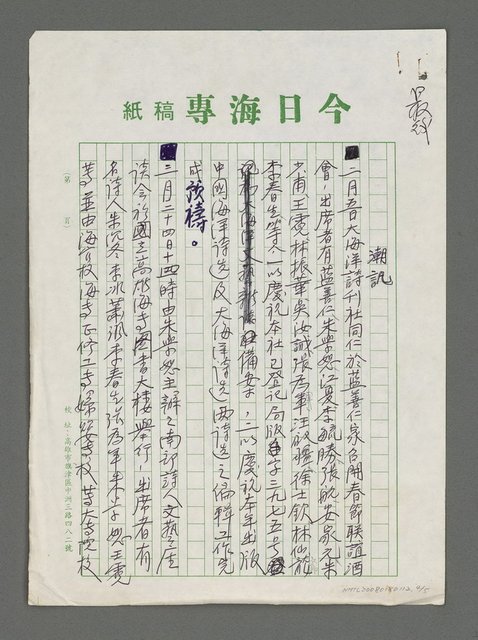 今日海專稿紙
最終
潮訊
■二月五日大海洋詩刊社同仁於藍善仁家召開春節聯誼酒
會，出席者有藍善仁朱學恕江夏李毓勝張航安家元朱
甫王霓林振華吳汝誠張為軍汪啟疆徐士欽林仙龍
李春生等人，一以慶祝本社已登記局版字三九七五号
備案，二以慶祝本年出版
中國海洋詩選及大海洋詩選兩詩選之編輯工作完
成預禱。
■二月二十四日十四時由朱學恕主辦之南部詩人文藝座
談會於國立高雄海專圖書大樓舉行，出席者有
名詩人朱沉冬李冰蕭颯李春生張為軍朱學恕王霓
等並由海官校海專正修工專婦嬰護校等大專院校
（第 頁）
校址：高雄市旗津區中洲三路四八二號
NMTL20080180112, 4/5